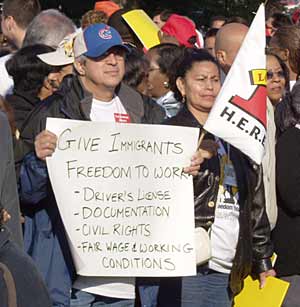 GIVE IMMIGRANTS
FREEDOM TO WORK
- DRIVER'S LICENSE
- DOCUMENTATION
- CIVIL RIGHTS
- FAIR WAGE & WORKING
CONDITIONS
H.E.R.E.